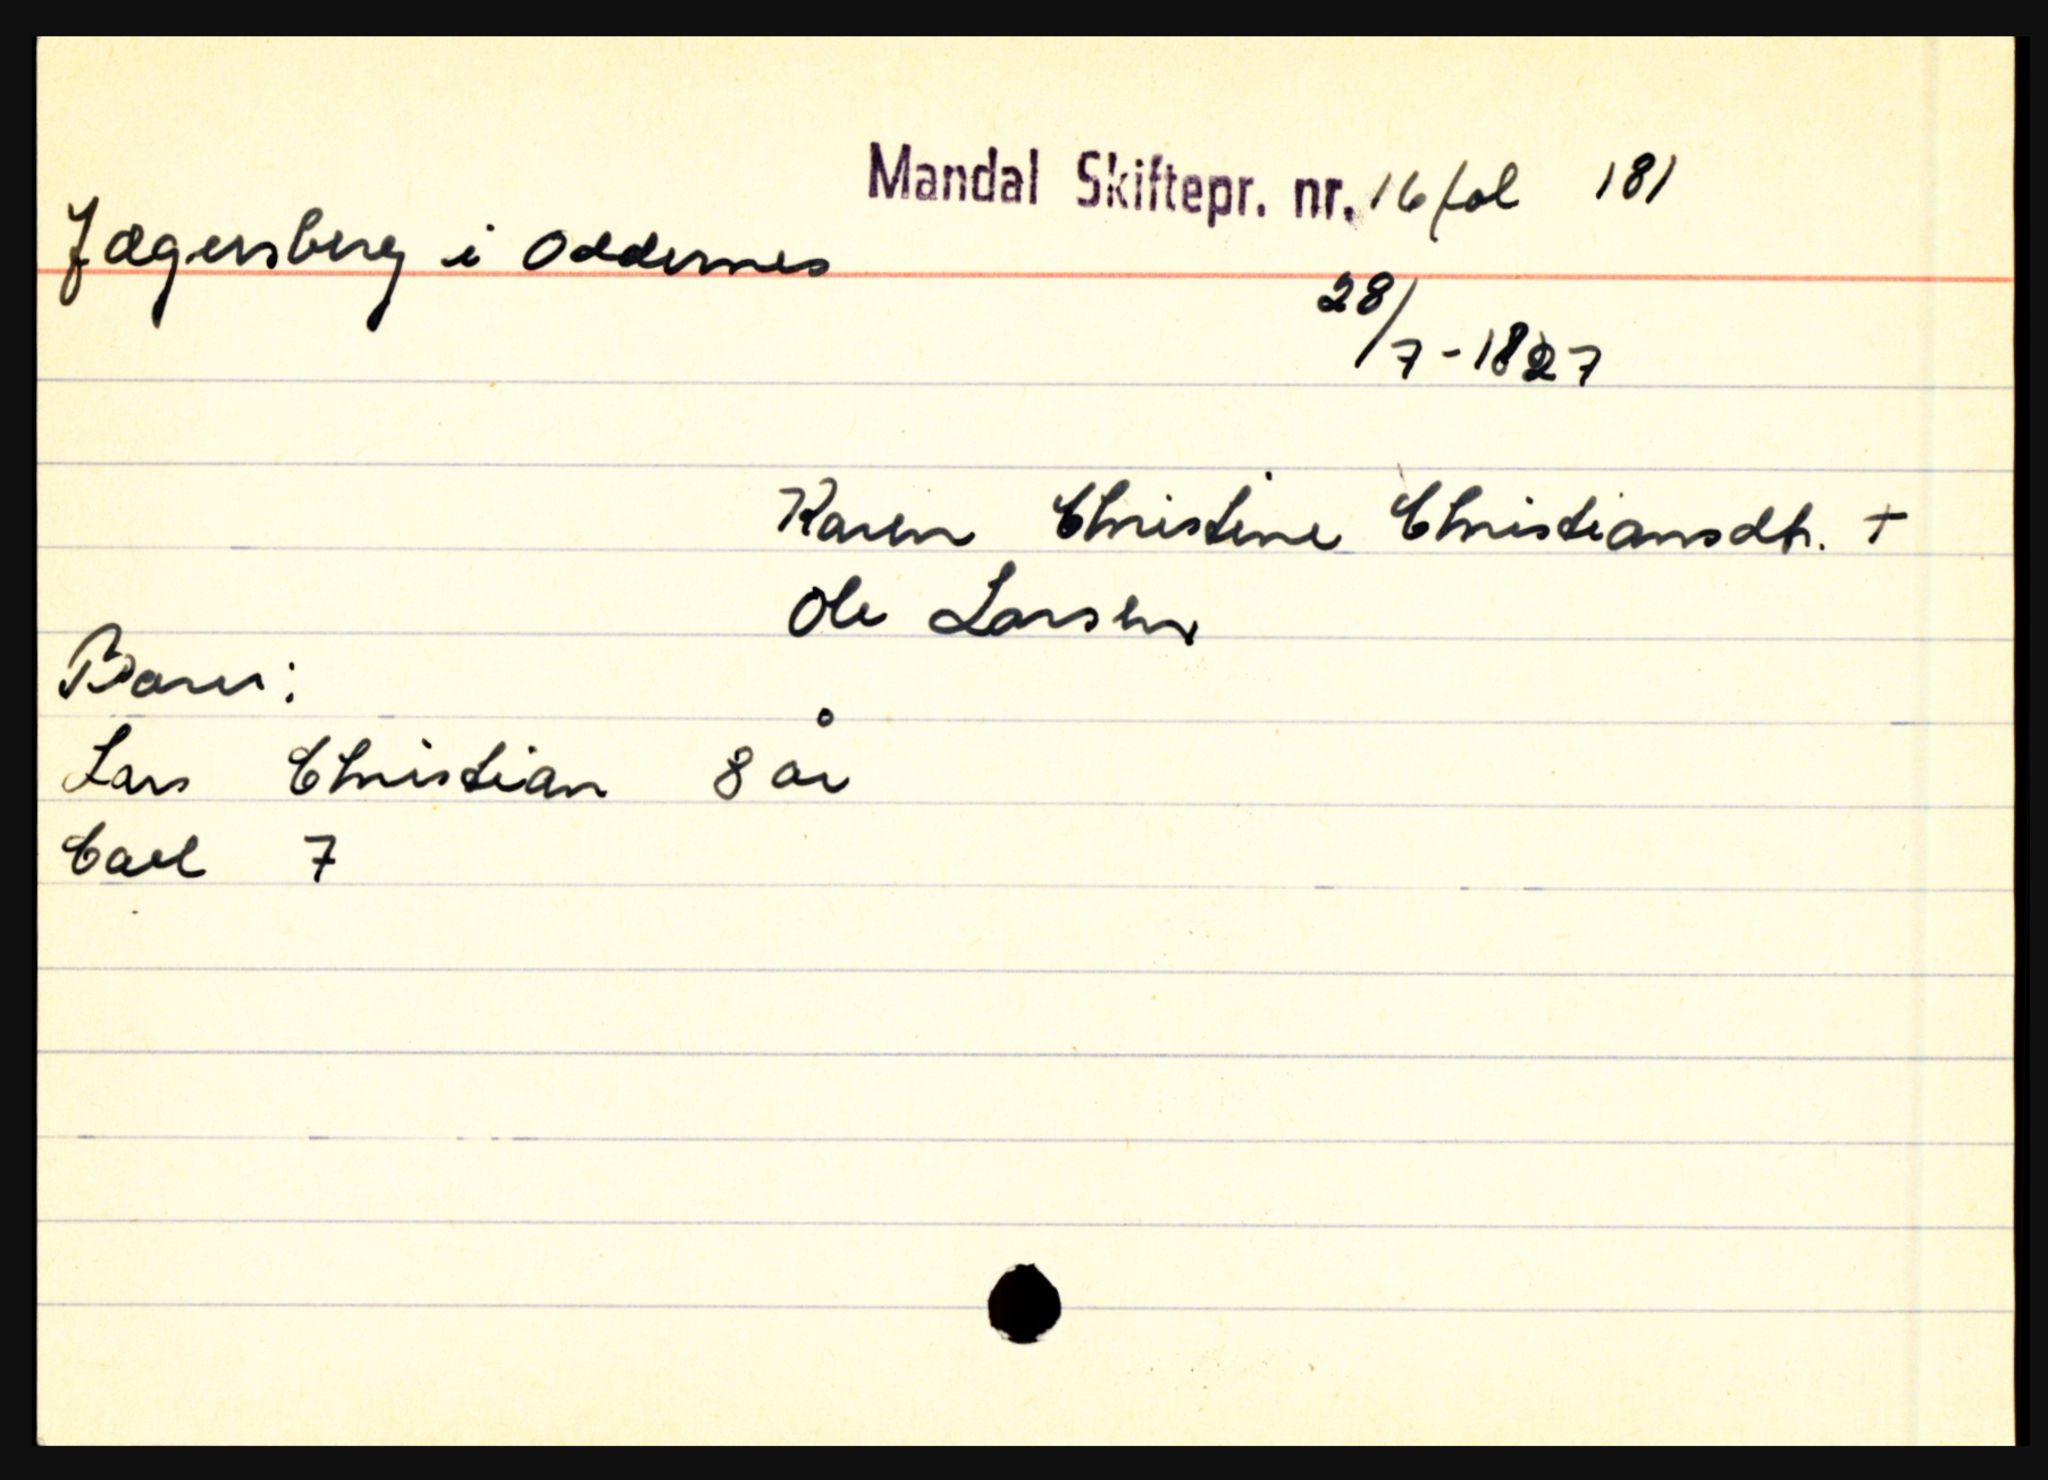 Mandal Skiftepr. nr. 16 fol 181
Jægersberg i Oddernes
28/7-1827
Karen Christine Christiansdt. +
Ole Larsen
Barn:
Lars Christian 8 år
Carl 7